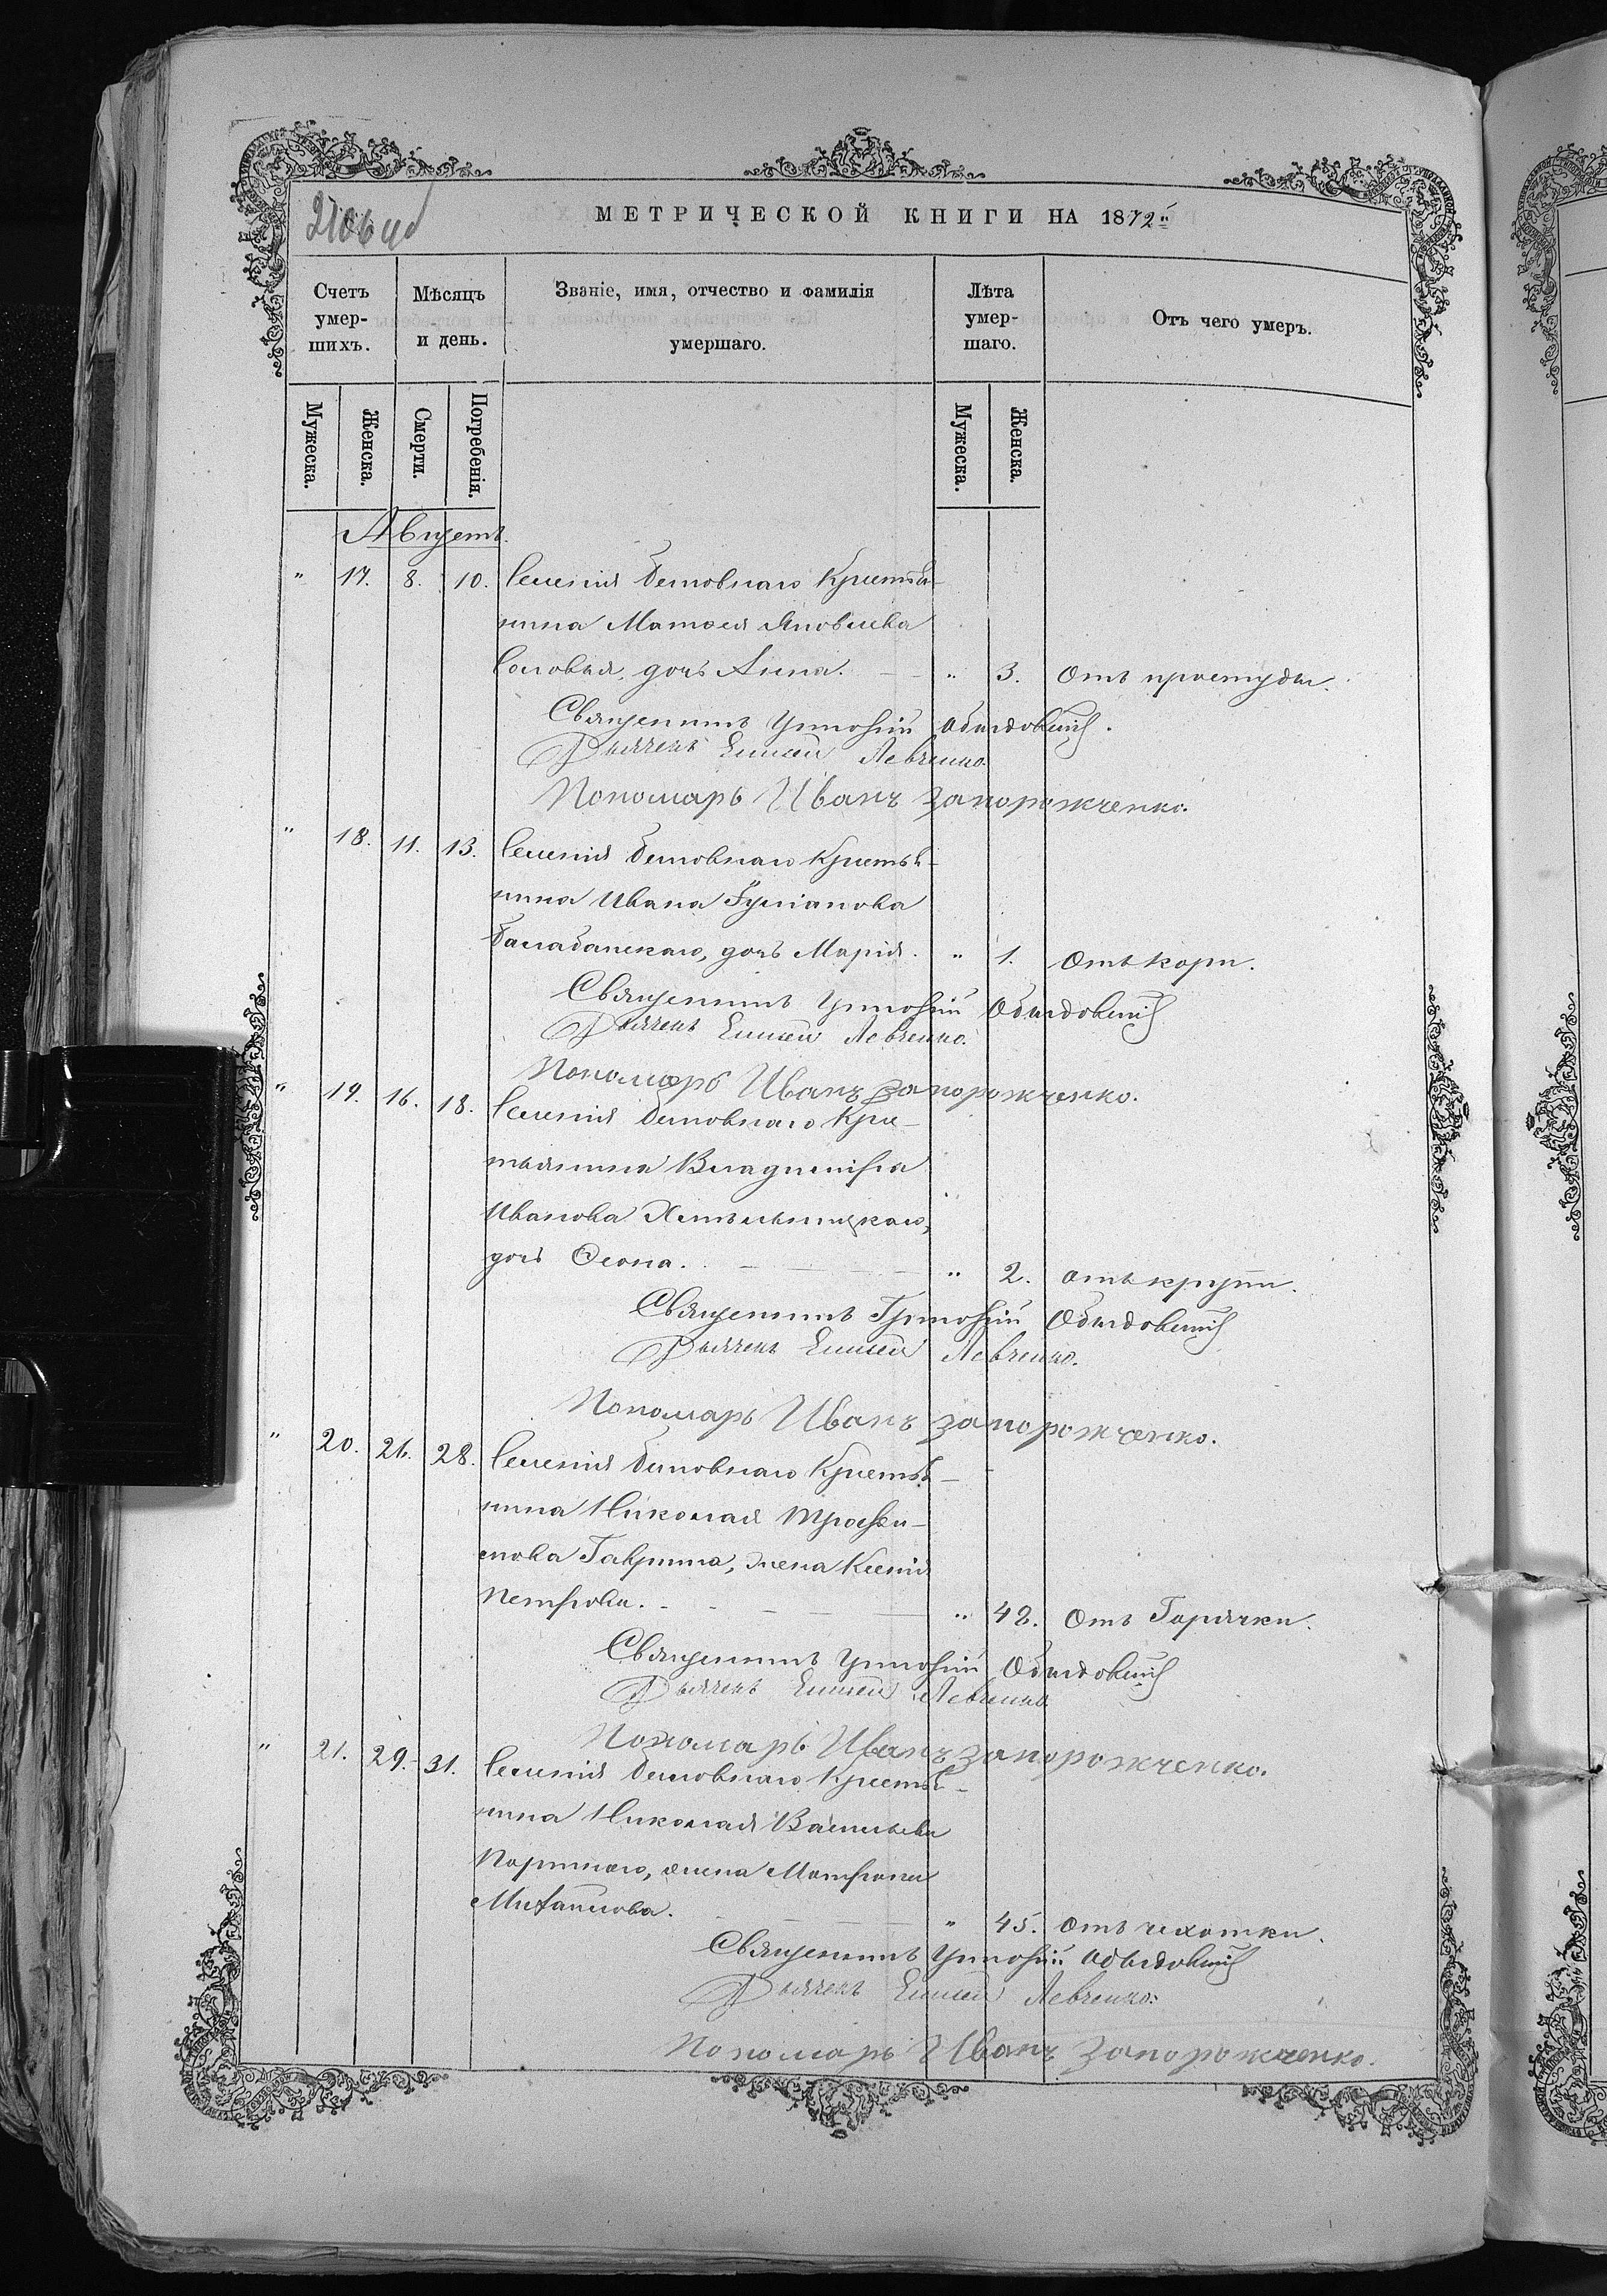 МЕТРИЧЕСКОЙ КНИГИ НА 1872й
Счетъ умер-шихъ.
Мѣсяцъ и день.
Званіе, имя, отчество и фамилія умершаго.
Лѣта умер-шаго.
Отъ чего умеръ.
Мужеска.
Женска.
Смерти.
Погребенія.
Мужеска.
Женска.
Августъ.
" 17. 8. 10. Селенія Бетовнаго Крестья-
нина Матѳея Яковлева
Соловья, дочь Анна. " 3. Отъ простуды.
Священникъ Григорій
Дьячекъ Елисей Левченко.
Пономарь Иванъ Запорожченко.
" 18. 11. 13. Селенія Крестья-
нина Ивана
Балабанскаго, дочь Марія. " 1. Отъ кори.
Священникъ Григорій
Дьячекъ Елисей Левченко.
Пономарь Иванъ Запорожченко.
" 19. 16. 18. Селенія Кре-
стьянина Владиміра
Иванова Хмѣльницкаго,
дочь " 2. отъ крупа.
Священникъ Григорій
Дьячекъ Елисей Левченко.
Пономарь Иванъ Запорожченко.
" 20. 26. 28. Селенія Крестья-
нина Николая Трофи-
мова Гаврила, жена Ксенія
Петрова. " 42. Отъ Горячки.
Священникъ Григорій
Дьячекъ Елисей Левченко
Пономарь Иванъ Запорожченко.
" 21. 29. 31. Селенія Крестья-
нина Николая Васильева
жена Матрона
Михайлова. " 45. Отъ чахотки.
Священникъ Григорій
Дьячекъ Елисей Левченко.
Пономарь Иванъ Запорожченко.